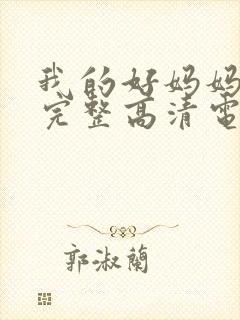 我的好妈妈
完整高清電
郭淑蘭